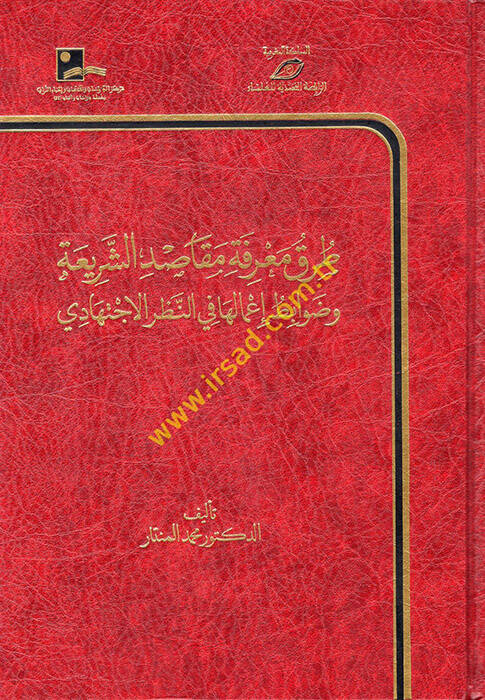 المملكة المغربية
الرابطة المحمدية للعلماء
طرق معرفة مقاصد الشريعة
وضوابط إعمالها في النظر الاجتهادي
www.irsad.com.tr
تأليف
الدكتور محمد المنتار